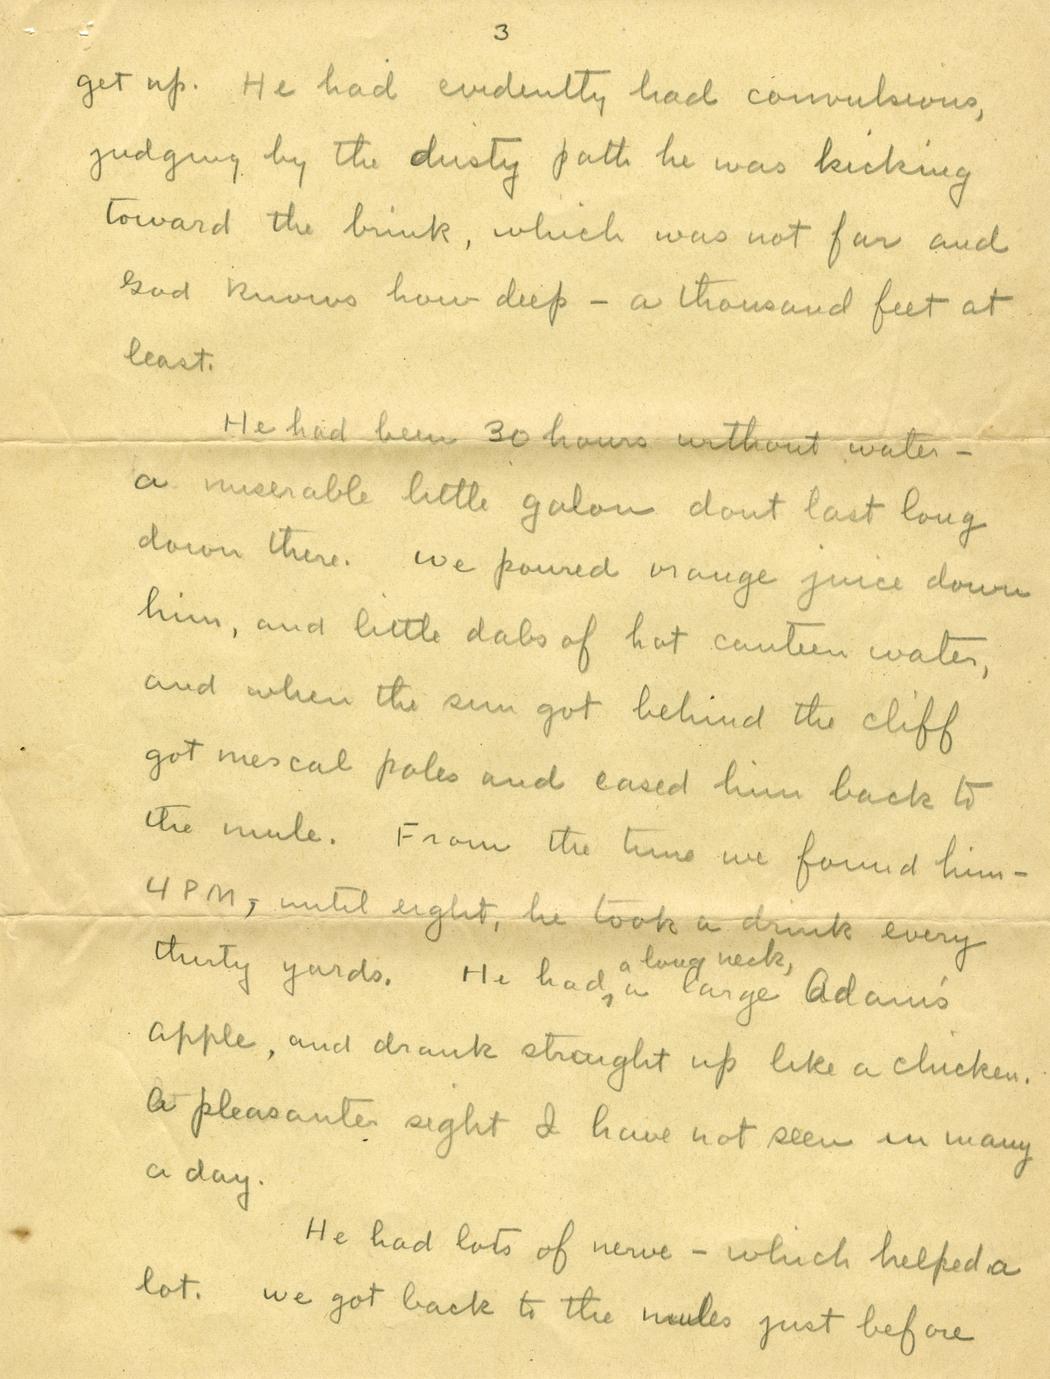 3
get up. He had evidently had convulsions,
judging by the dusty path he was kicking
toward the brink, which was not far and
God knows how deep – a thousand feet at
least.
He had been 30 hours without water –
a miserable little galon dont last long
down there. We poured orange juice down
him, and little dabs of hot canteen water,
and when the sun got behind the cliff
got mescal poles and eased him back to
the mule. From the time we found him –
4 PM, until eight, he took a drink every
thirty yards. He had, a long neck, a large Adam's
apple, and drank straight up like a chicken.
A pleasanter sight I have not seen in many
a day.
He had lots of nerve – which helped a
lot. We got back to the mules just before